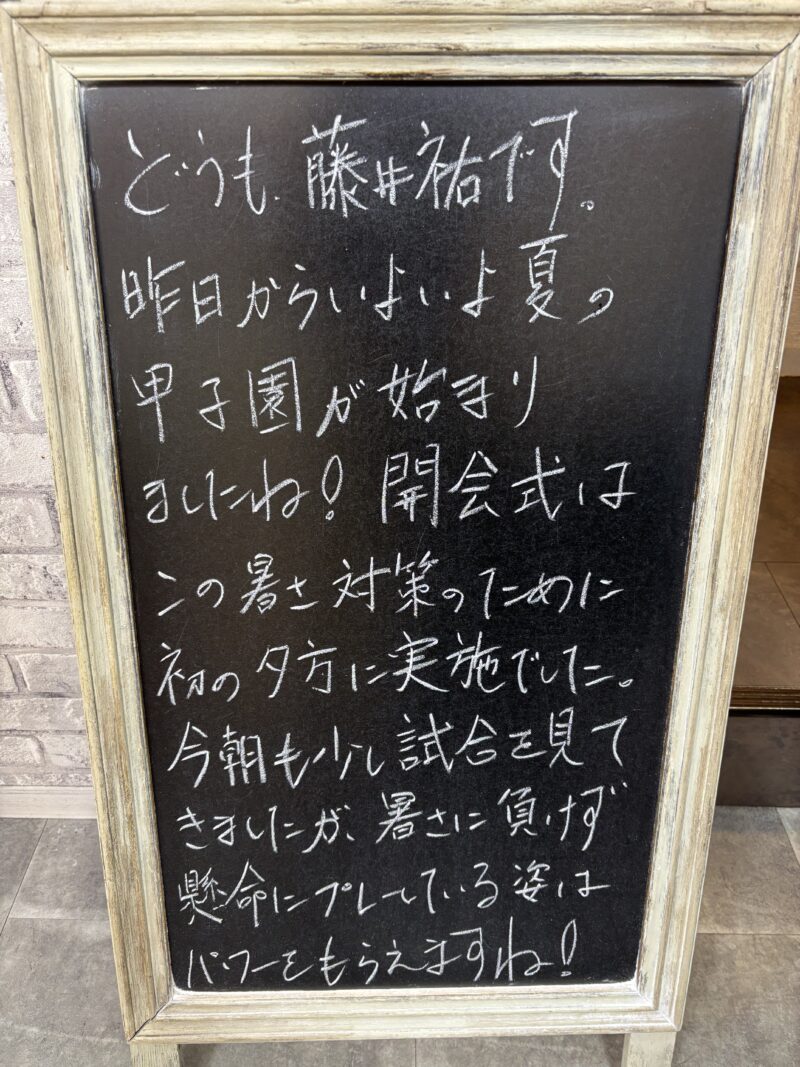 どうも、藤井祐です。
昨日からいよいよ夏の
甲子園が始まり
ましたね！開会式は
この暑さ対策のために
初の夕方に実施でした。
今朝も少し試合を見て
きましたが、暑さに負けず
懸命にプレーしている姿は
パワーをもらえますね！